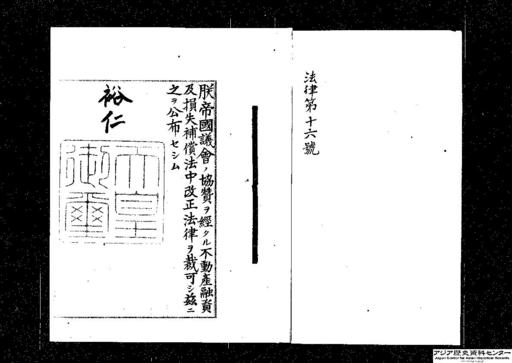 法律第十六號
朕帝國議會ノ協贊ヲ經タル不動產融資
及損失補償法中改正法律ヲ裁可シ茲ニ
之ヲ公布セシム
裕仁
天皇
御璽
アジア歴史資料センター
Japan Center for Asian Historical Records